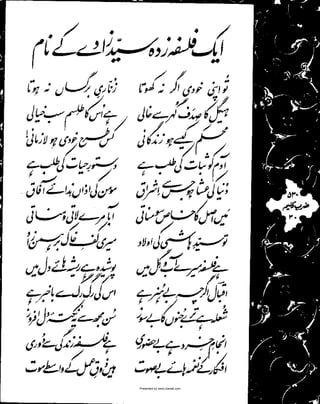 ایک فلسفہ زدہ سیّد زادے کے نام
تُو اپنی خودی اگر نہ کھوتا زُنّاریِ برگساں نہ ہوتا
ہیگل کا صدف گہر سے خالی ہے اس کا طلسم سب خیالی
محکم کیسے ہو زندگانی کس طرح خودی ہو لازمانی
آدم کو ثبات کی طلب ہے دستورِ حیات کی طلب ہے
دنیا کی عشا ہو جس سے اشراق مومن کی اذاں ندائے آفاق
میں اصل کا خاص سومناتی آبا مرے لاتی و مناتی
تو سیّد ہاشمی کی اولاد میری کفِ خاک برہمن زاد
ہے فلسفہ میرے آب و گل میں پوشیدہ ہے ریشہ ہائے دل میں
اقبال اگرچہ بے ہنر ہے اس کی رگ رگ سے باخبر ہے
شعلہ ہے ترے جنوں کا بے سوز سُن مجھ سے یہ نکتۂ دل افروز
انجامِ خرد ہے بے حضوری ہے فلسفہ زندگی سے دوری
افکار کے نغمہ ہائے بے صوت ہیں ذوقِ عمل کے واسطے موت
۵۳۰
ضربِ کلیم
Presented by www.ziaraat.com